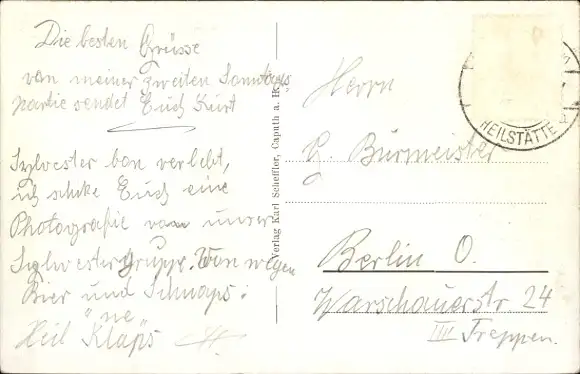 Die besten Grüsse
von meiner zweiten Sonntags
partie sendet Euch Kurt
Sylvester verlebt,
ich schike Euch eine
Photografie von unser
Sylvestergrupp. Von wegen
Bier und Schnaps:
"ne"
Heil Klaps
Verlag Karl Scheffler, Caputh a. H.
Herrn
Burmeister
Berlin O.
Warschauerstr. 24
IIII Treppen.
HEILSTÄTTE